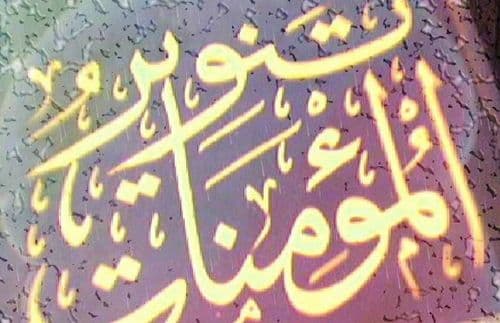 تنوير
المؤمنات